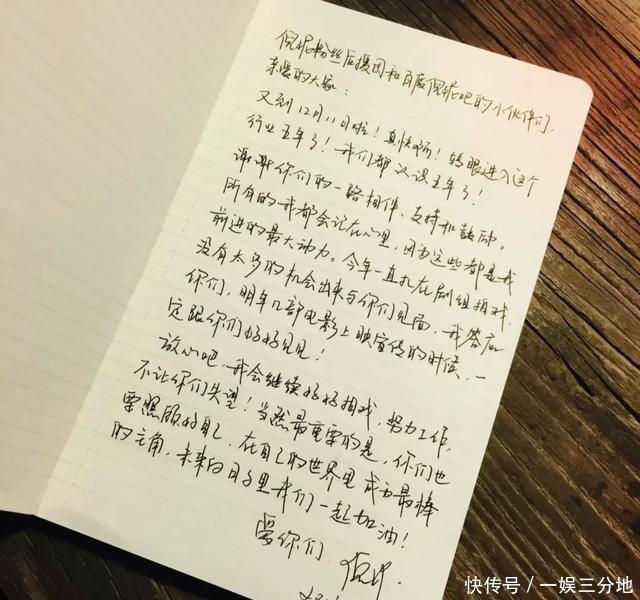 倪妮粉丝后援团和百度倪妮吧的小伙伴们,
亲爱的大家:
又到12月11日啦!真快啊!转眼进入这个
行业五年了!我们都认识五年了!
谢谢你们的一路相伴、支持和鼓励。
所有的我都会记在心里,因为这些都是我
前进的最大动力。今年一直扎在剧组拍戏,
没有太多的机会出来与你们见面,我答应
你们,明年几部电影上映宣传的时候,一
定跟你们好好见见!
放心吧,我会继续好好拍戏,努力工作,
不让你们失望!当然最重要的是,你们也
要照顾好自己,在自己的世界里成为最棒
的主角,未来的日子里我们一起加油!
爱你们 倪妮.
快传号/一娱三分地